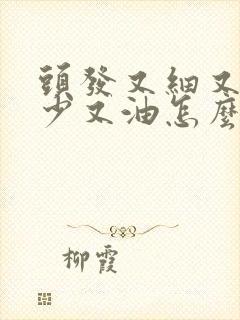 頭發又細又
少又油怎麼
柳霞